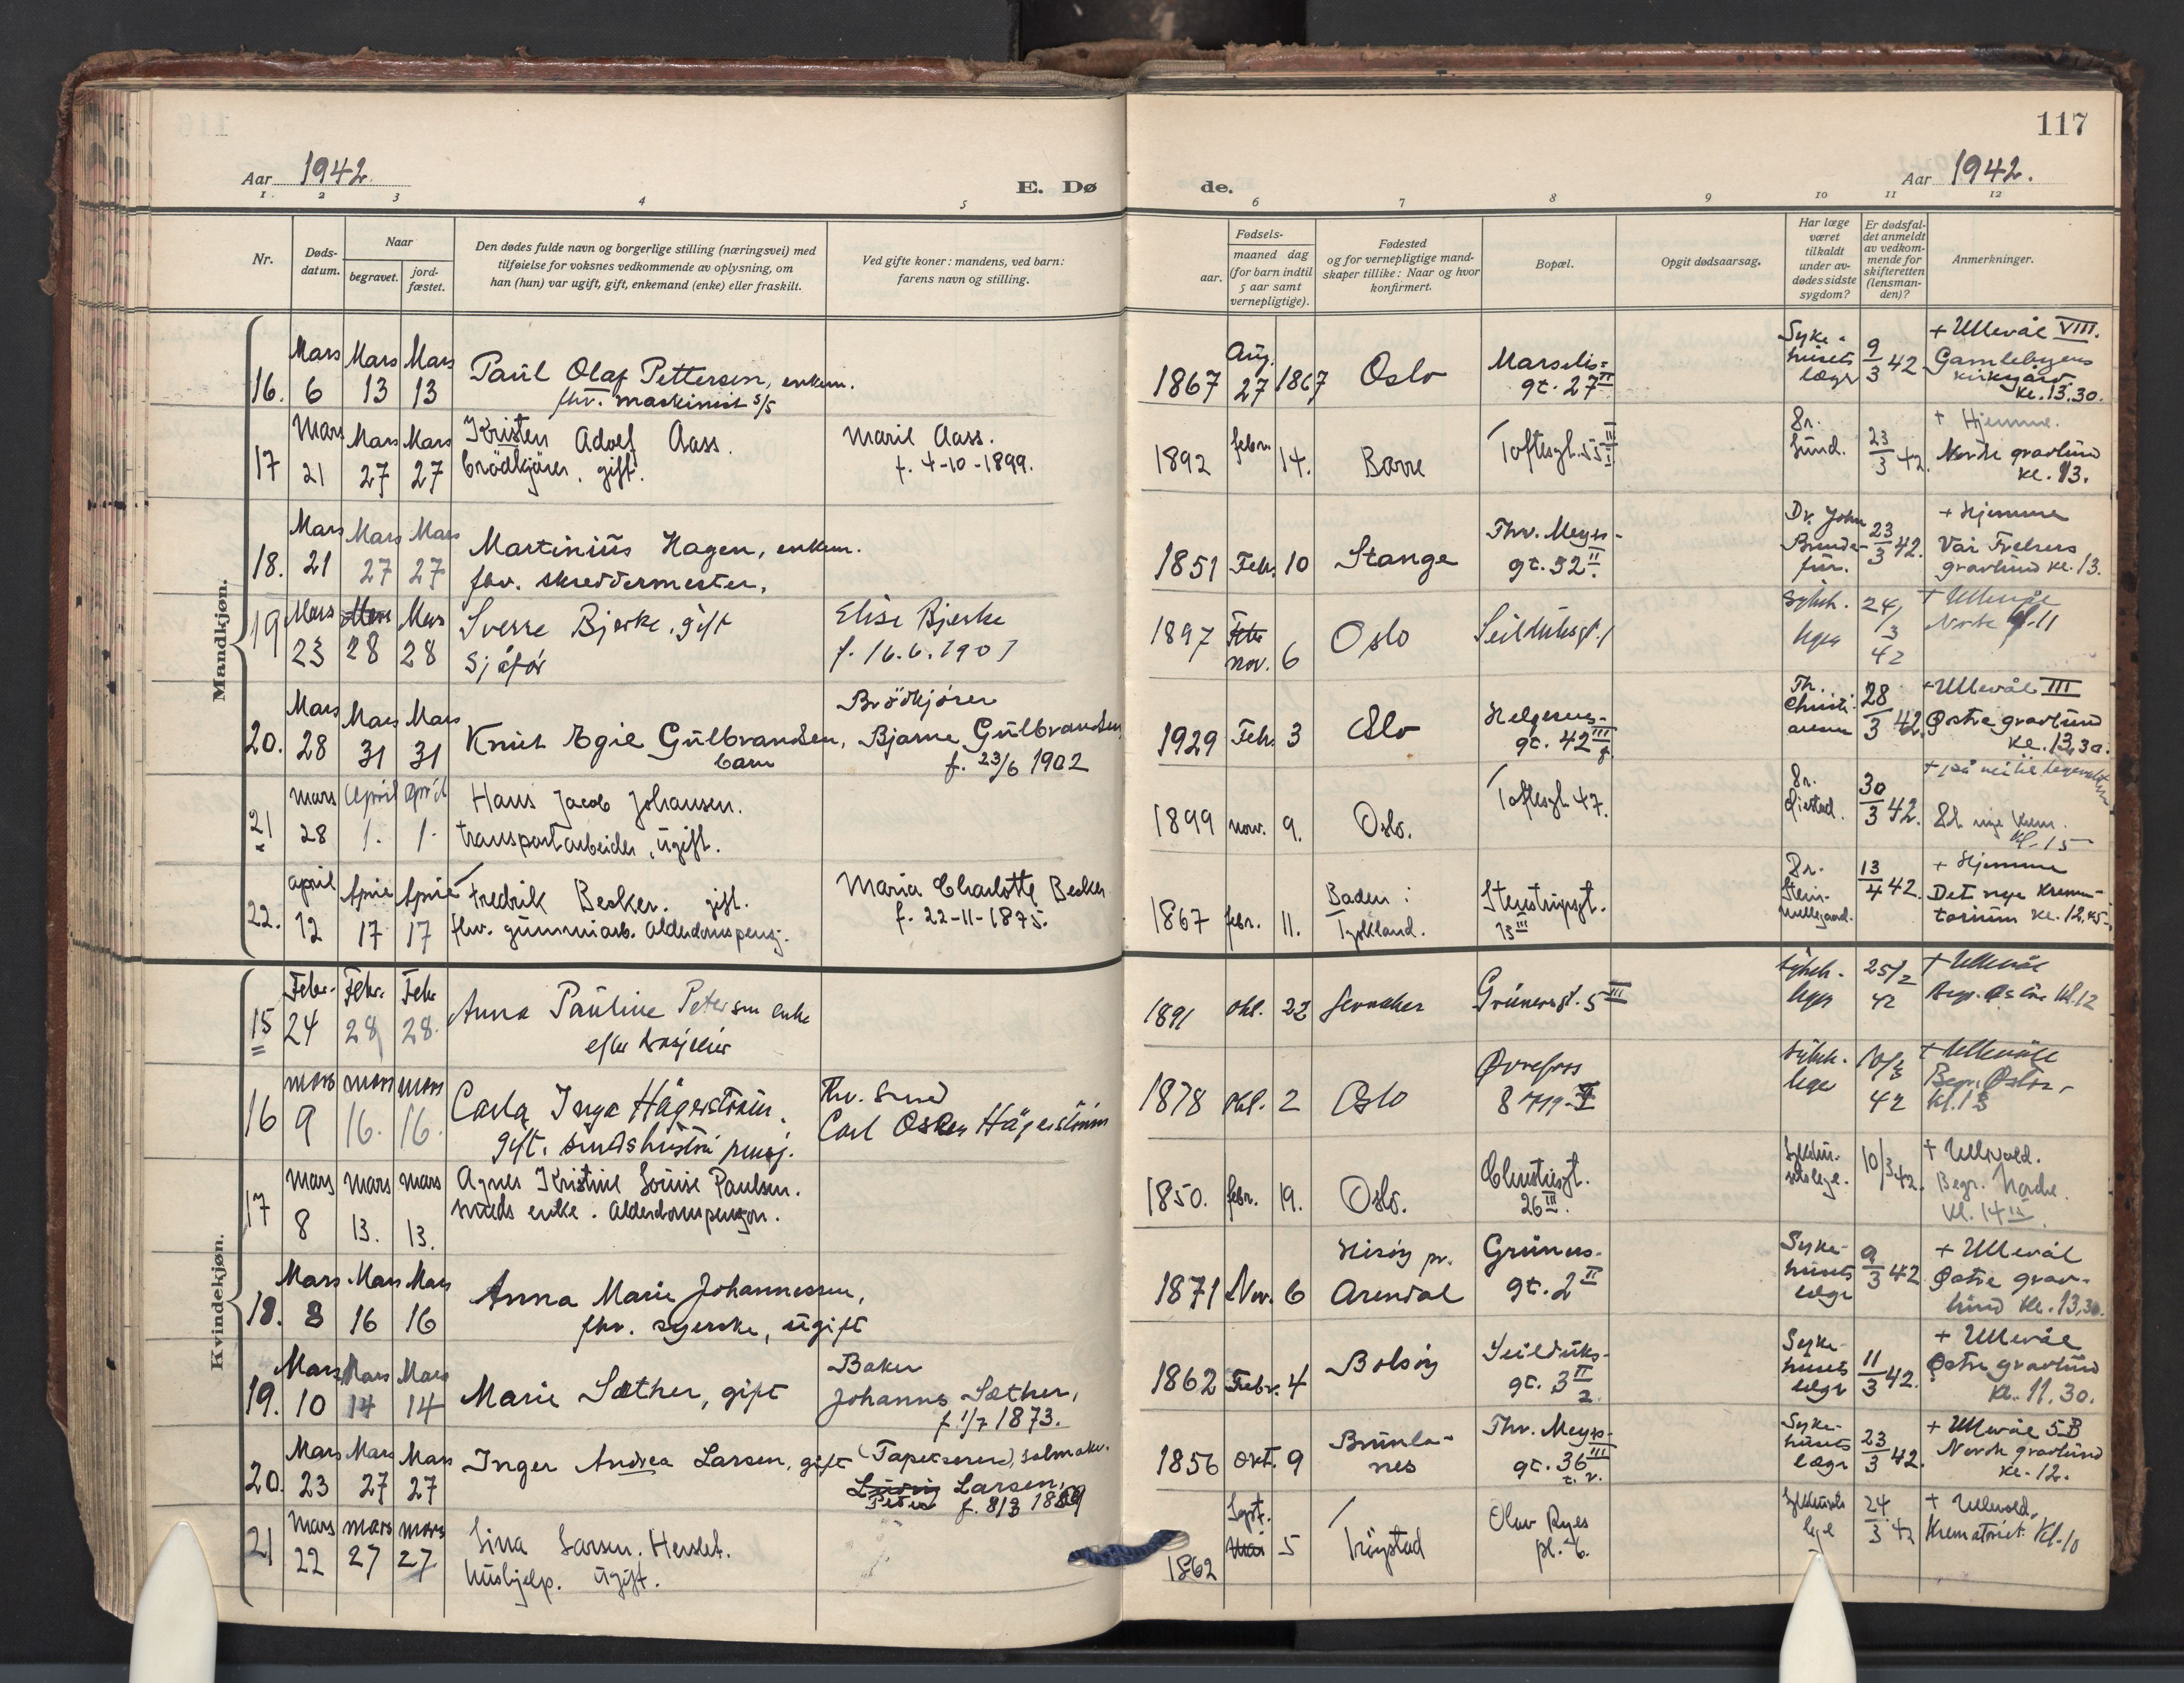 117
Aar 1942. E. Dø de. Aar 1942.
1 2 3 4 5 6 7 8 9 10 11 12
Nr.
Døds-
datum.
Naar
begravet.
jord-
fæstet.
Den dødes fulde navn og borgerlige stilling (næringsvei) med
tilføielse for voksnes vedkommende av oplysning, om
han (hun) var ugift, gift, enkemand (enke) eller fraskilt.
Ved gifte koner: mandens, ved barn:
farens navn og stilling.
Fødsels-
aar.
maaned dag
(for barn indtil
5 aar samt
vernepligtige).
Fødested
og for vernepligtige mand-
skaper tillike: Naar og hvor
konfirmert.
Bopæl.
Opgit dødsaarsag.
Har læge
været
tilkaldt
under av-
dødes sidste
sygdom?
Er dødsfal-
det anmeldt
av vedkom-
mende for
skifteretten
(lensman-
den)?
Anmerkninger.
Mandkjøn.
16. Mars 6 Mars 13 Mars 13
Paul Olaf Pettersen, enkem.
fhv. maskinist s/s
1867 Aug. 27 1867 Oslo
Marselis-
gt. 27 II
Syke-
husets
læge
9/3 42
+ Ullevål VIII.
Gamlebyens
kirkegård
kl. 13.30.
17 Mars 21 Mars 27 Mars 27
Kristen Adolf Aass.
brødkjører, gift.
Maril Aass.
f. 4-10-1899.
1892 febr. 14. Borre
Toftesgt. 55 III
Dr.
Lund.
23/3 42.
+ Hjemme.
Nordre gravlund
kl. 13.
18. Mars 21 Mars 27 Mars 27
Martinius Hagen, enkem.
fhv. skreddermester.
1851 Febr. 10 Stange
Thv. Meyers-
gt. 52 II.
Dr. John
23/3 42.
+ Hjemme
Vår Frelsers
gravlund kl. 13.
19 Mars 23 Mars 28 Mars 28
Sverre Bjerke, gift
Sjåfør
Elise Bjerke
f. 16.6.1907
1897 Febr nov. 6 Oslo
Seilduksgt. 1
Sykeh.
lege
24/3 42
+ Ullevål
Nordre kl. 11
20. Mars 28 Mars 31 Mars 31
Knut Egil Gulbrandsen,
barn
Brødkjører
Bjarne Gulbrandsen
f. 23/6 1902
1929 Febr. 3 Oslo
Helgesens-
gt. 42 III
Th.
Christi-
ansen
28/3 42.
+ Ullevål III
Østre gravlund
kl. 13,30.
21 mars 28 april 1. april 1.
Hans Jacob Johansen.
transportarbeider, ugift.
1899 nov. 9. Oslo.
Toftesgt. 47.
Dr.
30/3 42.
+ på vei til legevakten
Det nye Krem.
kl. 15
22. april 12 April 17 April 17
Fredrik Becker. gift.
fhv. gummiarb. Alderdomspensj.
Maria Charlotte Becker
f. 22-11-1875.
1867 febr. 11.
Baden i
Tyskland.
Stenstrupgt.
13 III
Dr.
13/4 42.
+ Hjemme
Det nye Krema-
torium kl. 12.45
Kvindekjøn.
15 Febr. 24 Febr. 28 Febr. 28.
Anna Pauline Petersen enke
efter
1891 okt. 22 Jevnaker
Grünersgt. 5 III
Sykeh.
lege
25/2 42
+ Ullevål
Begr. Østre kl. 12
16 mars 9 mars 16. mars 16.
Carla Inga Hägerström.
gift.
Carl Oscar Hägerström
1878 okt. 2 Oslo
Øvrefoss
8
Sykeh.
lege
10/3 42
+ Ullevål
Begr. Østre
kl. 13
17 mars 8 mars 13. mars 13.
Agnes Kristine Louise Paulsen.
enke. Alderdomspensjon.
1850. febr. 19. Oslo.
Christiesgt.
26 III.
Sykehu-
setslege.
10/3 42.
+ Ullevold.
Begr. Nordre.
kl. 14
18. Mars 8 Mars 16 Mars 16
Anna Marie Johannessen,
fhv. syerske, ugift
1871 Nov. 6
Hisøy pr.
Arendal
Grüners-
gt. 2 II
Syke-
husets
læge
9/3 42
+ Ullevål
Østre grav-
lund kl. 13,30.
19. Mars 10 Mars 14 Mars 14
Marie Sæther, gift
Baker
Johannes Sæther,
f. 1/7 1873.
1862 Febr. 4 Bolsøy
Seilduks-
gt. 3 II
2.
Syke-
husets
læge
11/3 42.
+ Ullevål
Østre gravlund
kl. 11.30.
20. Mars 23 Mars 27 Mars 27
Inger Andrea Larsen, gift
(Tapetserer), salmakr.
Ludvig Larsen,
Peter f. 8/3 1869
1856 Okt. 9
Brunla-
nes
Thv. Meyers-
gt. 36 III
t. v.
Syke-
husets
læge
23/3 42.
+ Ullevål 5 B
Nordre gravlund
kl. 12.
21 mars 22 mars 27 mars 27
Lina Larsen. Herslet.
hushjelp. ugift.
1862 Sept. Mai 5 Trøgstad
Olav Ryes
pl. 6.
Sykehusets
lege
24/3 42
+ Ullevold.
Krematoriet. Kl. 10